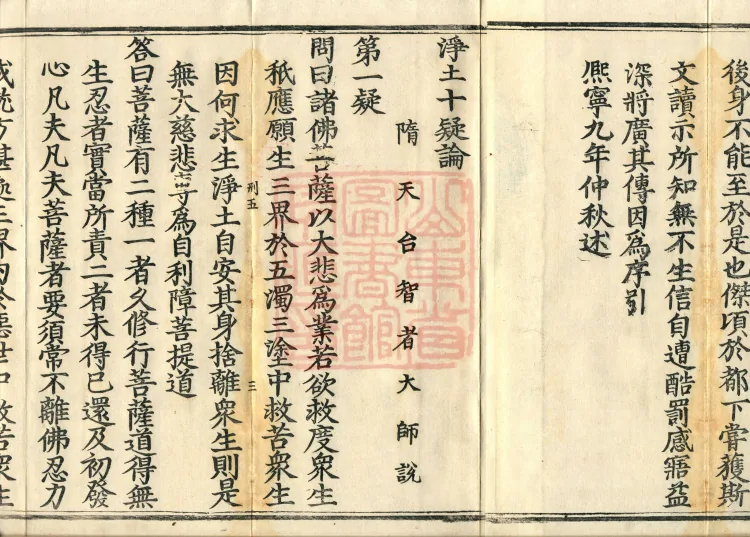 後身不能至於是也傑頃於都下嘗獲斯
文讀示所知無不生信自遭酷罰感寤益
深將廣其傳因爲序引
熈寧九年仲秋述
淨土十疑論
隋天台智者大師説
第一疑
問曰諸佛菩薩以大悲爲業若欲救度衆生
秖應願生三界於五濁三塗中救苦衆生
因何求生淨土自安其身捨離衆生則是
刑五
三
無大慈悲専爲自利障菩提道
答曰菩薩有二種一者久修行菩薩道得無
生忍者實當所責二者未得已還及初發
心凡夫凡夫菩薩者要須常不離佛忍力
成就方堪處三界內於惡世中救苦衆生
山東省圖書館